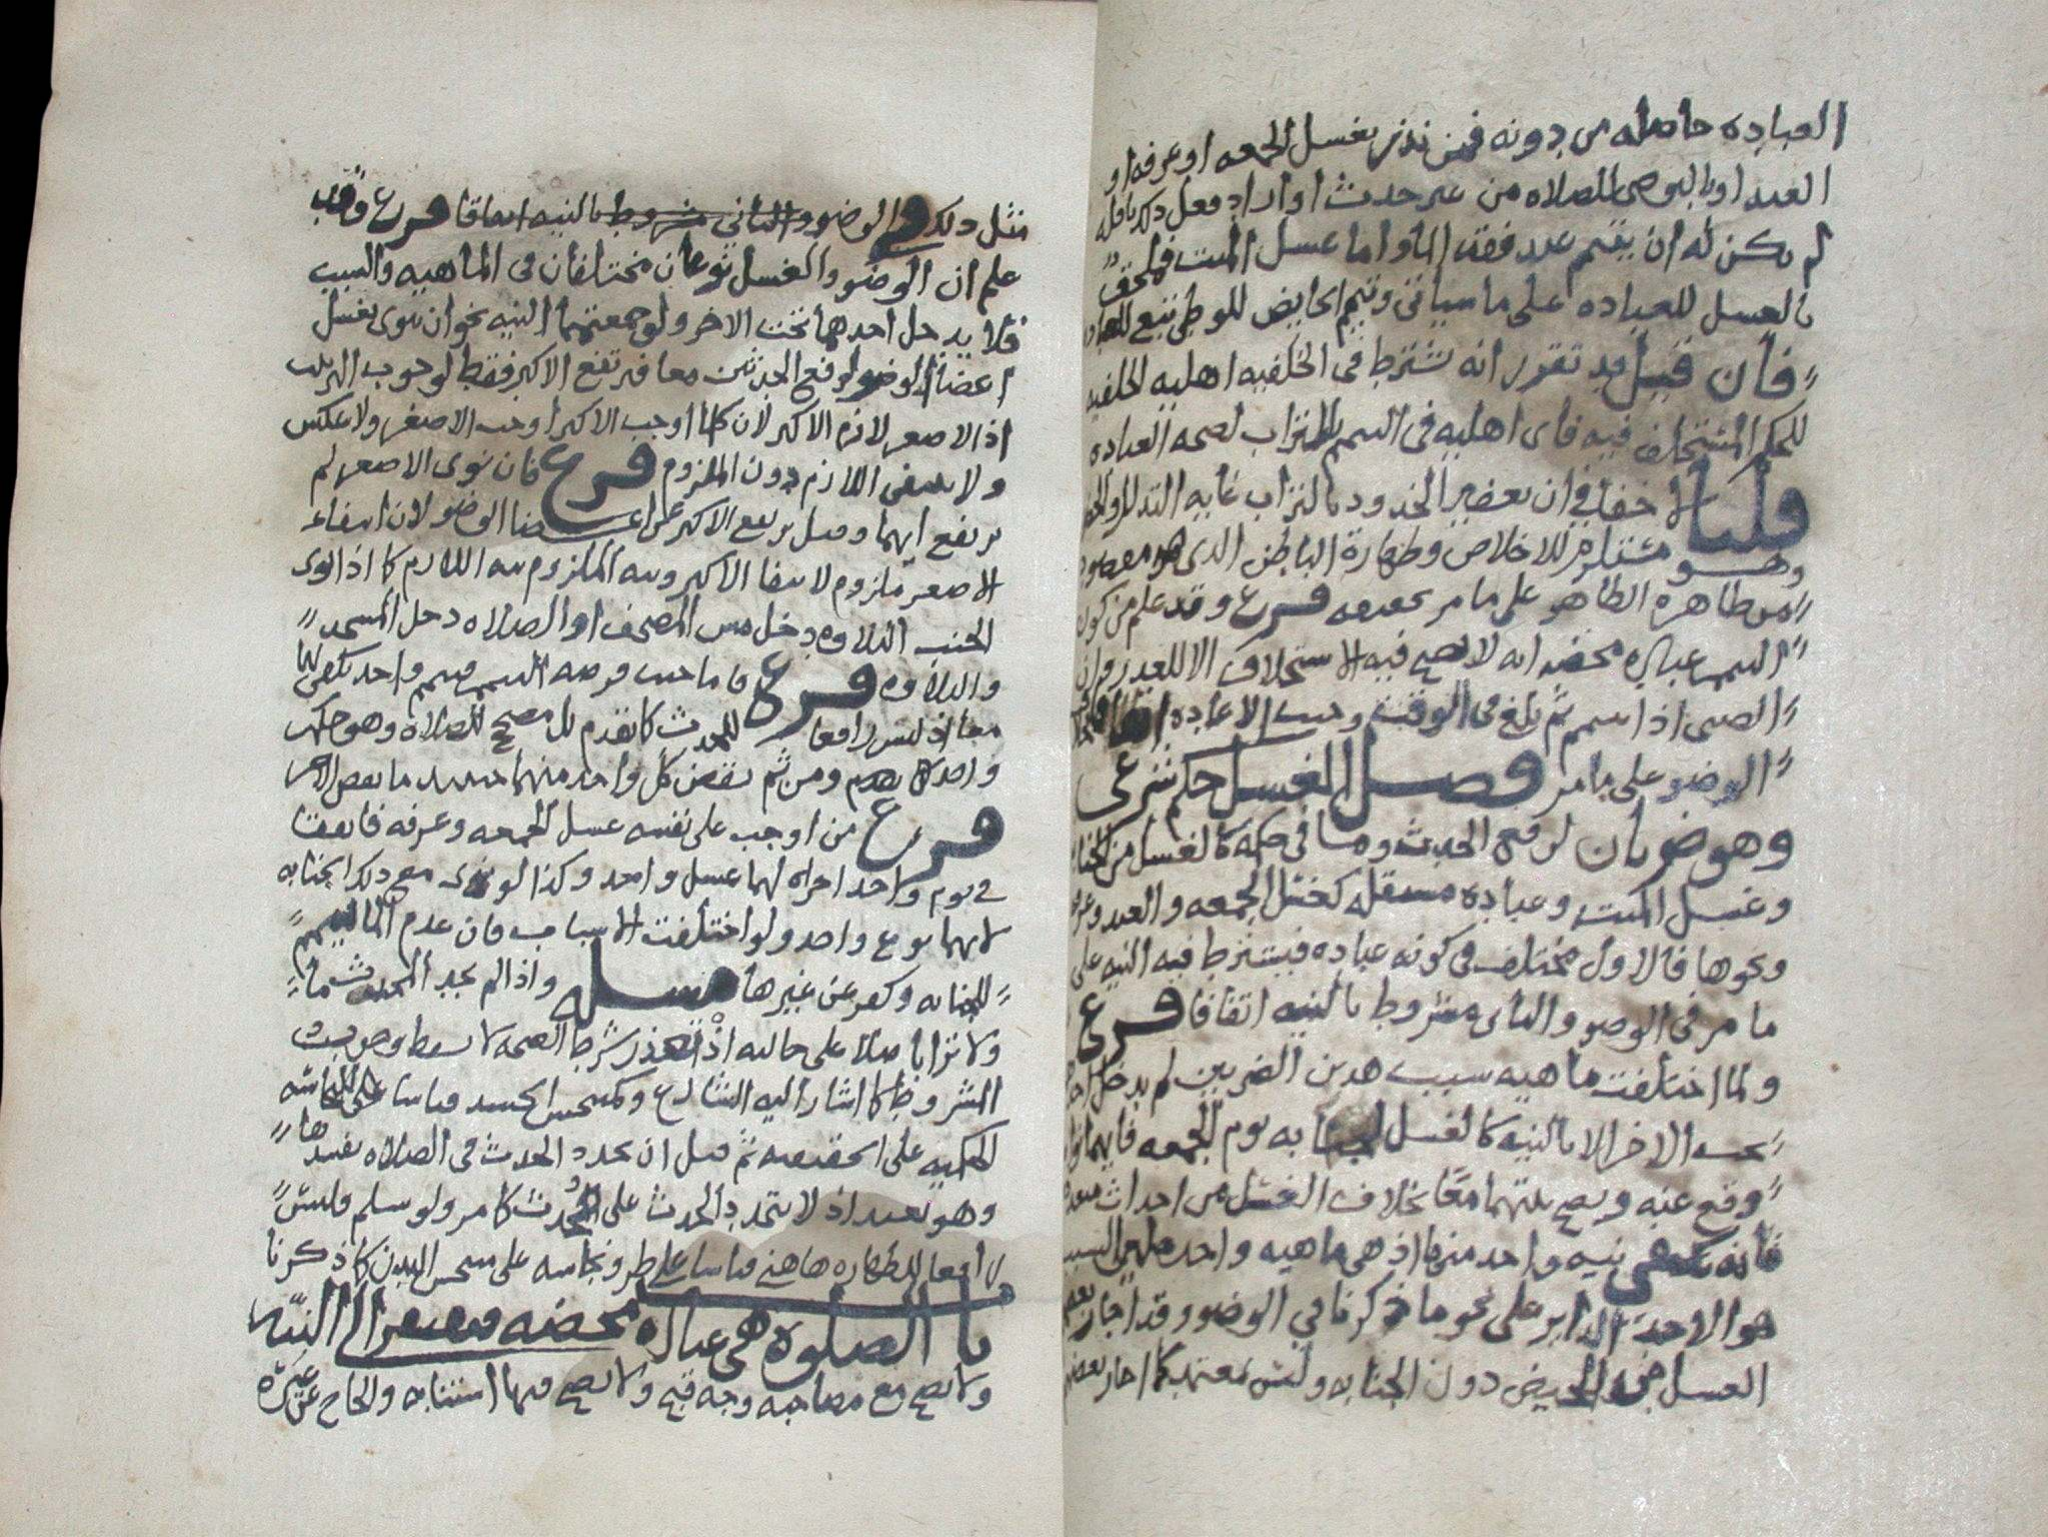 العباده حاصله من دونه فمن نذر بغسل الجمعه او عرفه او
العيد او بالتوضي للصلاه من غير حدث او اراد فعل ذلك نافله
لم يكن له ان يتيمم عند فقد الما واما غسل الميت فملحق
بالغسل للعباده على ما سياتي وتيمم الحايض للوطي تبع للعباده
فان قيل قد تقرر انه تشترط في الخلفيه اهليه الخلفيه
للحكم المستخلف فيه فاى اهليه في التيمم بالتراب لصحه العباده
قلنا لا خفا في ان تعفير الخدود بالتراب غايه التذلل
وهو مستلزم للاخلاص وطهارة الباطن الذي هو مقصود
من طاهره الظاهر على ما مر تحقيقه فرع وقد علم من كون
التيمم عباده محضه انه لا يصح فيه الاستخلاف الا للعذر وان
الصبى اذا تيمم ثم بلغ في الوقت وجبت الاعاده
الوضو على ما مر فصل الغسل حكم شرعي
وهو ضربان لرفع الحدث وما في حكمه كالغسل من الجنابه
وغسل الميت وعباده مستقله كغسل الجمعه والعيد وعرفه
ونحوها فالاول مختلف في كونه عباده فيشترط فيه النيه على
ما مر في الوضو والثاني مشروط بالنيه اتفاقا فرع
ولما اختلفت ماهيه سبب هذين الضربين لم يدخل احد
تحت الاخر الا بالنيه كالغسل للجنابه يوم الجمعه فايهما نوى
وقع عنه ويصح بنيتهما معا بخلاف الغسل من احداث متعدده
فانه تكفي نيه واحد منها اذ هي ماهيه واحده
هو الاحدث الداير على نحو ما ذكرنا في الوضو وقد اجاز بعضهم
الغسل من الحيض دون الجنابه وليس بمعتمد كما اجاز بعضهم
مثل ذلك في الوضو والثاني مشروط بالنيه اتفاقا فرع وقد
علم ان الوضو والغسل نوعان مختلفان في الماهيه والسبب
فلا يدخل احدهما تحت الاخر ولو جمعتهما النيه نحو ان ينوى بغسل
اعضا الوضو لرفع الحدثين معا فيرتفع الاكبر فقط لوجوب الترتيب
اذ الاصغر لازم الاكبر لان كلما اوجب الاكبر اوجب الاصغر ولا عكس
ولا ينتفى اللازم دون الملزوم فرع فان نوى الاصغر لم
يرتفع ايهما وقيل يرتفع الاكبر عن اعضا الوضو لان انتفاء
الاصغر ملزوم لانتفا الاكبر ونيه الملزوم نيه اللازم كما اذا نوى
الجنب التلاوه دخل مس المصحف او الصلاه دخل المسجد
والتلاوه فرع فاما حيث فرضه التيمم فتيمم واحد يكفي لهما
معا اذ ليس رافعا للحدث كما تقدم بل مصحح للصلاه وهو حكم
واحد كما تقدم ومن ثم نقض كل واحد منهما حينئذ ما نقض الاخر
فرع من اوجب على نفسه غسل الجمعه وعرفه فاتفقا
في يوم واحد اجزاه لهما غسل واحد وكذا لو نوى مع ذلك الجنابه
لانهما نوع واحد ولو اختلفت الاسباب فان عدم الما تيمم
للجنابه وكفر عن غيرها مسله واذا لم يجد المحدث ما
ولا ترابا صلا على حالته اذ تعذر شرط الصحه لا يسقط وجوب
المشروط كما اشار اليه الشارع وكمتنجس الجسد قياسا للنجاسه
الحكميه على الحقيقيه ثم قيل ان تجدد الحدث في الصلاه يفسدها
وهو بعيد اذ لا يتجدد الحدث على المحدث كما مر ولو سلم فليس
رافعا للطهاره هاهنا قياسا على طرو نجاسه على متنجس البدن كما ذكرنا
باب الصلوة هي عباده محضه فتفتقر الى النيه
ولا تصح مع مصاحبه وجه قبح ولا تصح فيها استنابه والحاج عن غيره